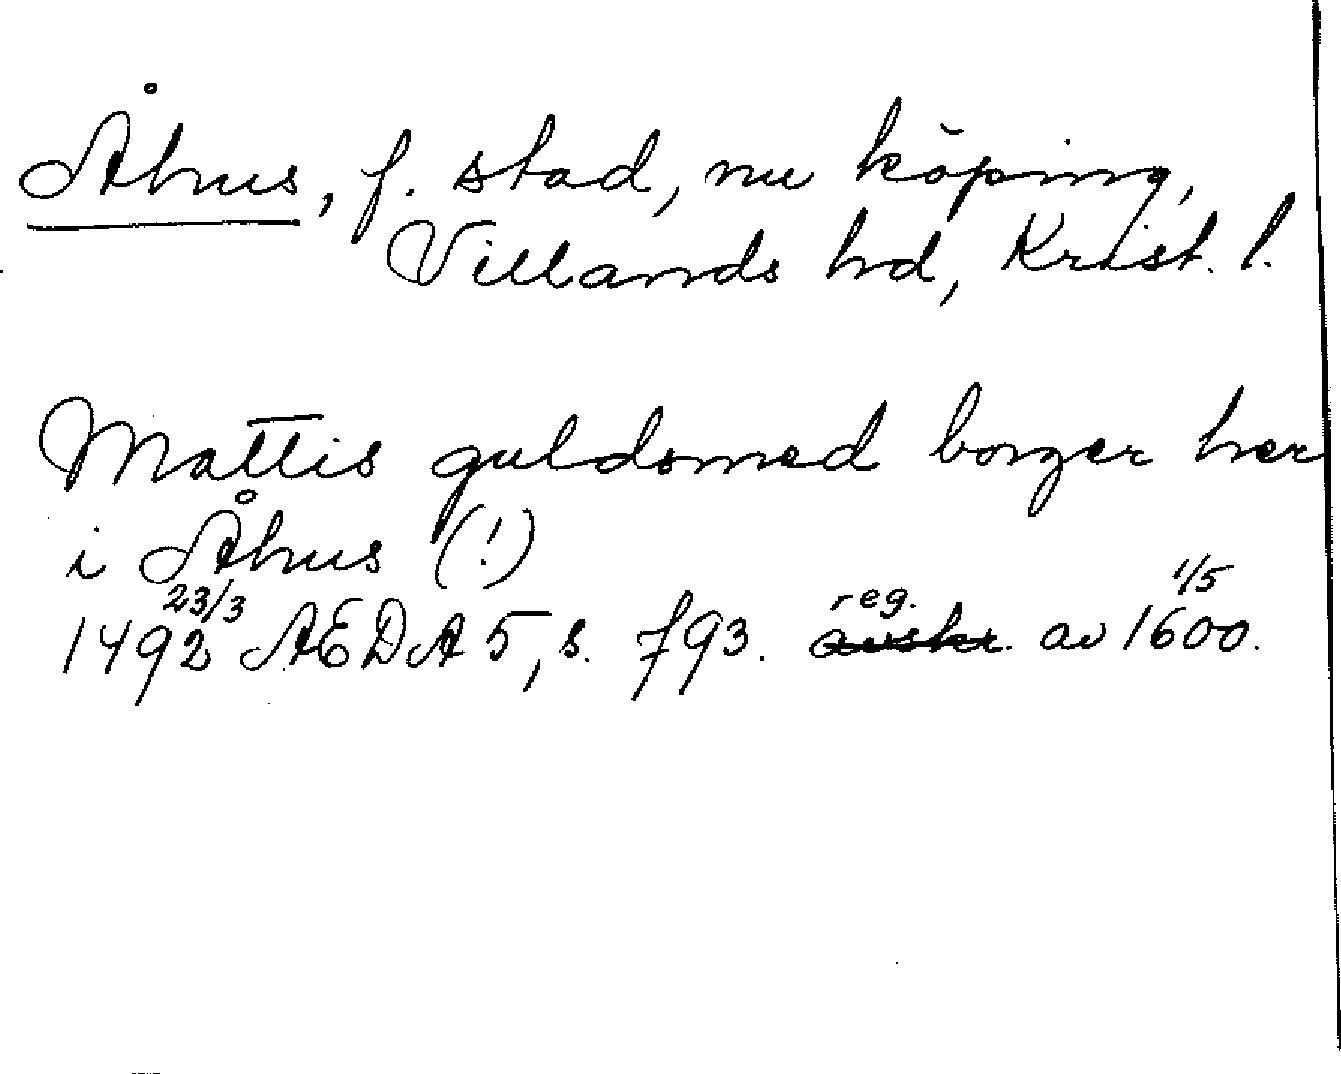 Åhus, f. stad, nu köping,
Villands hd, Krist. l.
Mattis guldsmed borger her
i Åhus (!)
1492 23/3 AEDA 5, s. 793. reg. avskr. av 1600. 1/5